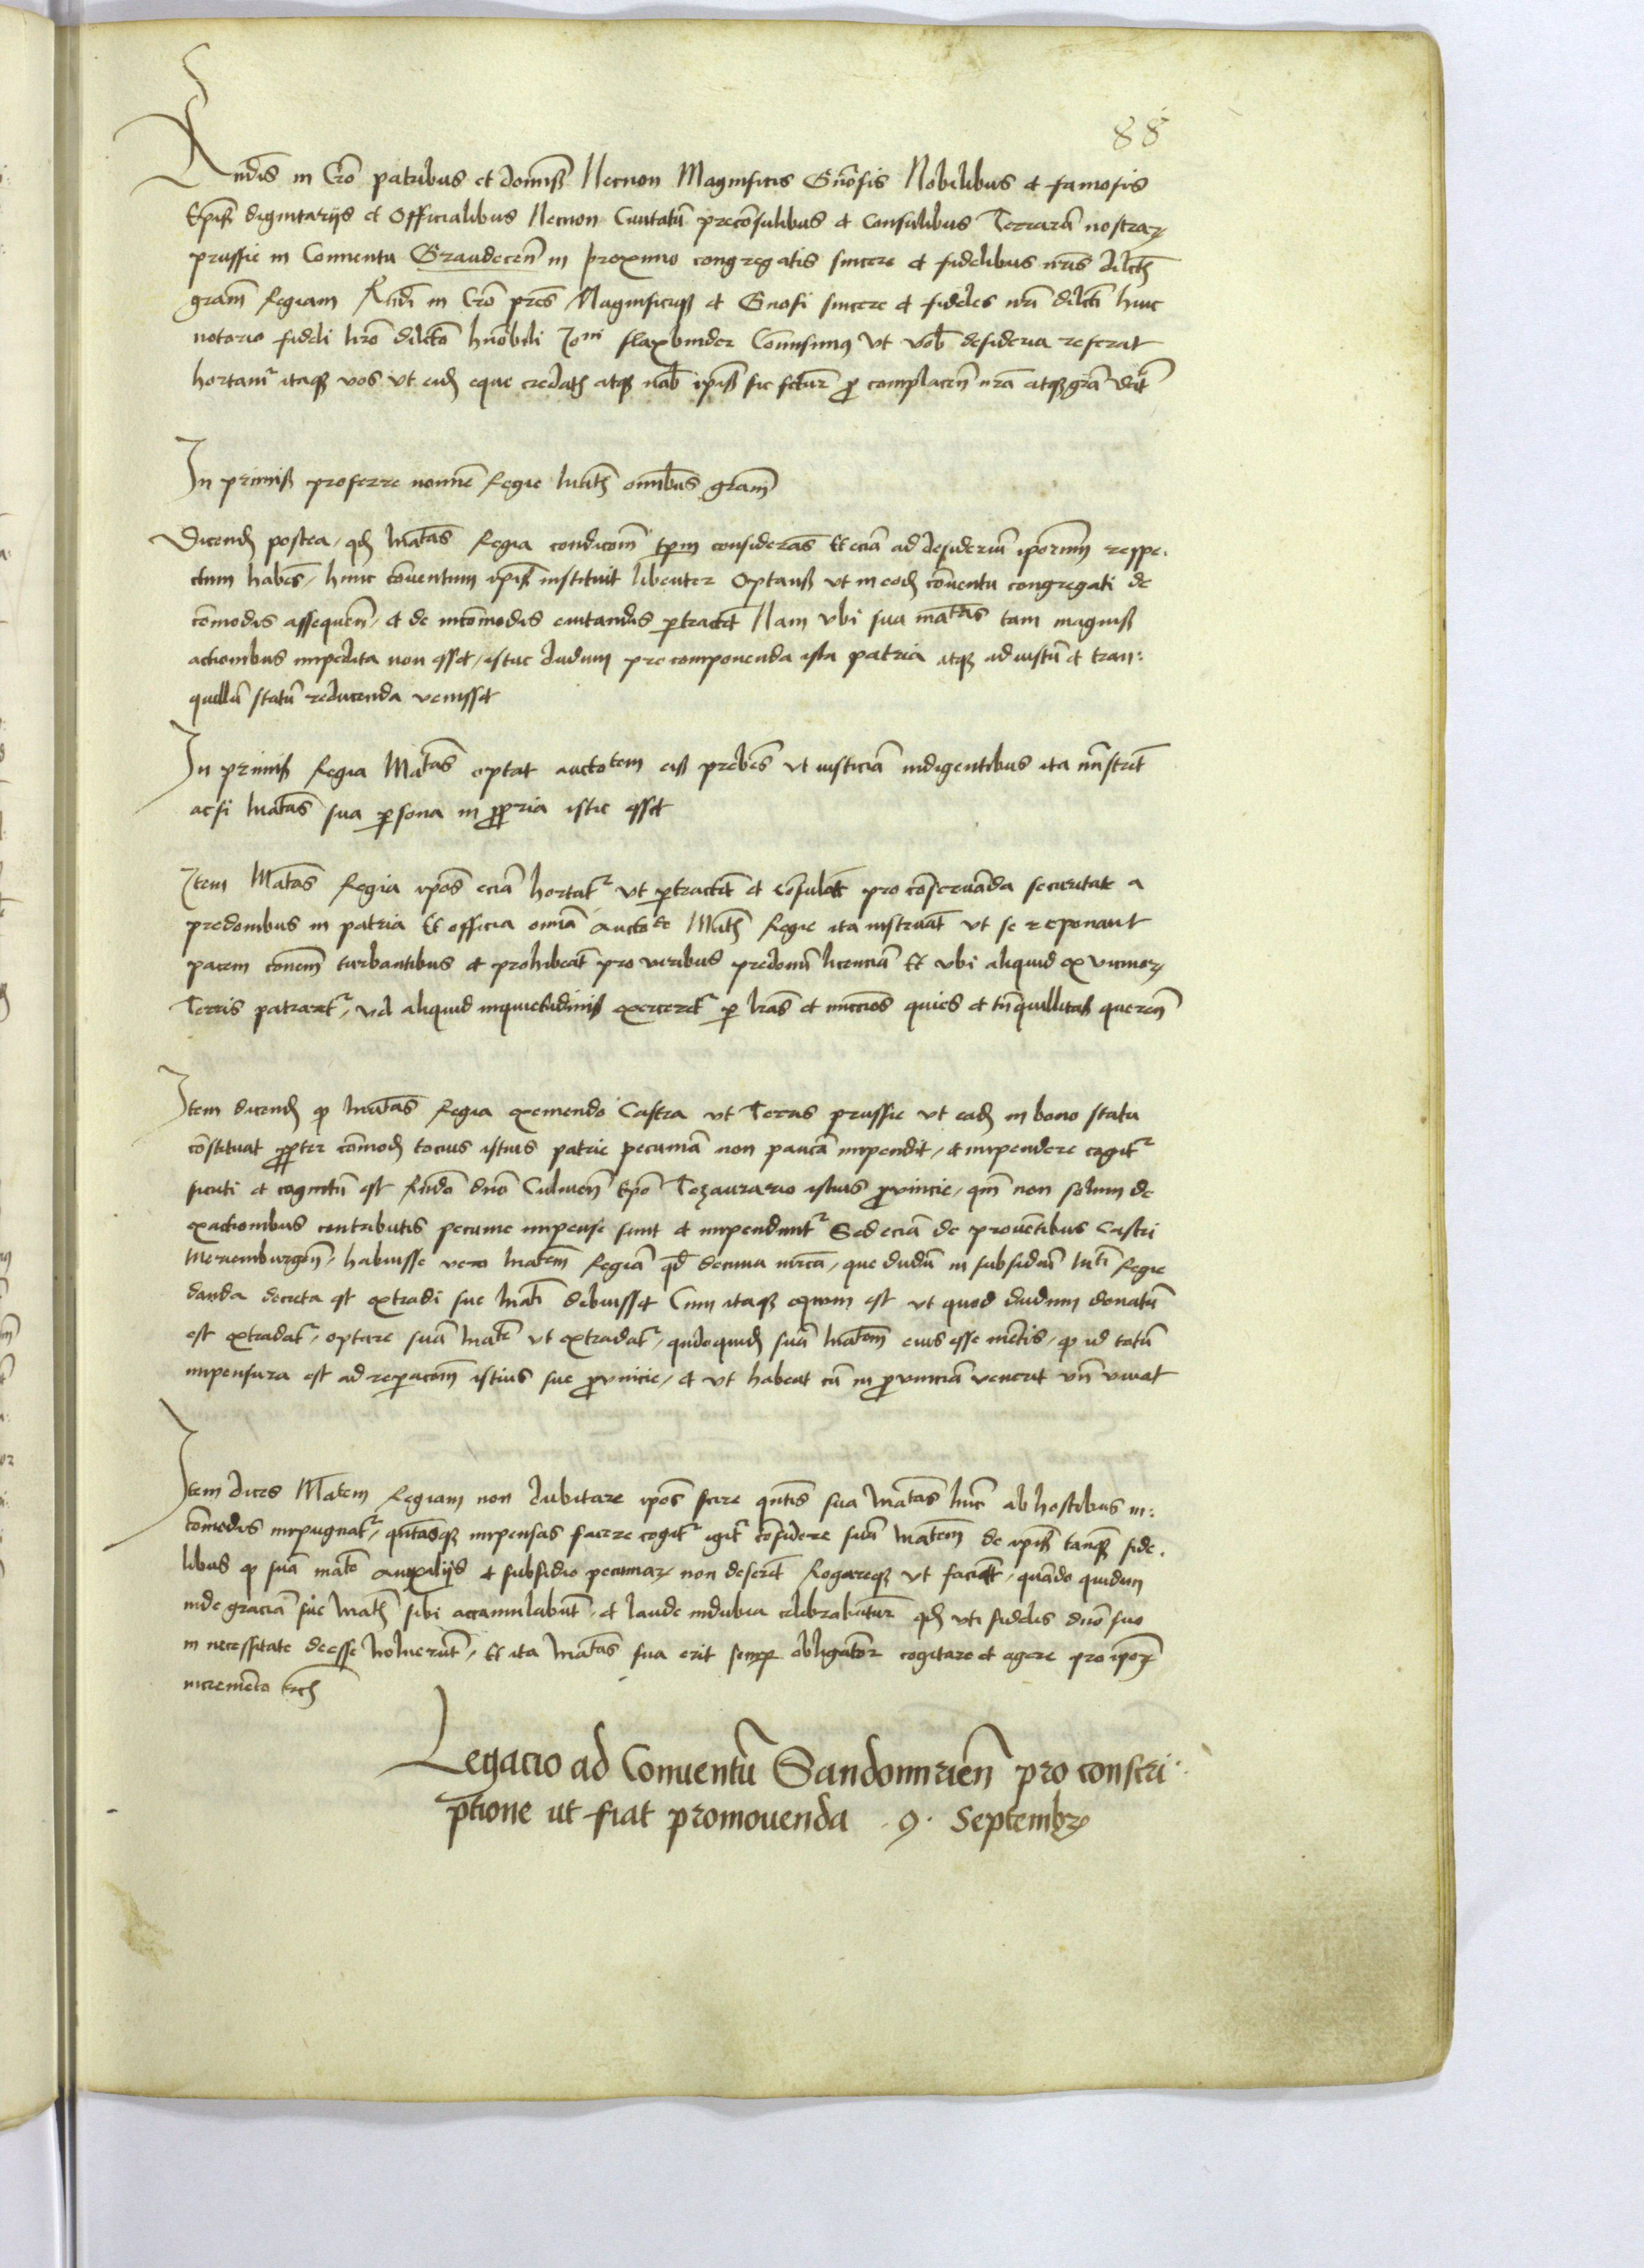 88
Rndis in Cro patribus et dominis Necnon Magnificis Gnosis Nobilibus et famosis
Epis dignitarijs et Officialibus Necnon Ciuitatu preconsulibus et Consulibus Terraru nostraꝝ
prussie in Conuentu Graudecen in proximo congregatis sincere et fidelibus nris dilctis
gram Regiam Rndi in Cro pres Magnificiqꝫ et Gnosi sincere et fideles nri dilcti huic
notario fideli nro dilcto flaxbinder Comisimus vt vob desideria referat
hortamr itaqꝫ vos vt eidꝫ eque credatis atqꝫ nob ipis sic fctur p complacen nra atqꝫ gra
In primis proferre nomine Regie Matis omnibus gram
Dicendꝫ postea, qdꝫ Matas Regia condicom tpm consideras Et ecia ad desideriu iporum respe.
ctum habes, hunc couentum ipis instituit libenter Optans vt in eodꝫ couentu congregati de
comodis assequen, et de incomodis euitandis ptractet Nam vbi sua matas tam magnis
actionibus impedita non esset, istuc dudum pro componenda ista patria atqꝫ ad iustu et tran:
quillu statu reducenda venisset
In primis Regia Matas optat auctotem eis prebes vt iusticia indigentibus ita mnstret
acsi Matas sua psona in ppria istic esset
Item Matas Regia ipos ecia hortatr vt ptractet et cosulat pro coseruanda securitate a
predonibus in patria Et officia omia auctote Matis Regie ita instruat vt se reponant
pacem conem turbantibus et prohibeat pro viribus predonu licencia Et vbi aliquid ex vicinoꝝ
Terris patraretr, vel aliquid inquietudinis exerceretr p lras et nuccios quies et tnquillitas queren
Item dicendꝫ qꝫ Matas Regia exemendo Castra vt Terras prussie vt eadꝫ in bono statu
costituat ppter comodꝫ tocius istius patrie pecunia non pauca impendit, et impendere cogitr
sicuti et cognitu est Rndo dno Culmen Epo Tezaurario istius puincie, qm non solum de
exactionibus contributis pecunie impense sunt et impenduntr Sed ecia de prouetibus Castri
Meriemburgen, habuisse vero Matem Regia qd decima mrca, que dudu in subsidiu Mti Regie
danda decreta est extradi sue Mati debuisset Cum itaqꝫ equum est vt quod dudum donatu
est extradatr, optare sua Mate vt extradatr, qndoquidꝫ sua Matem eius esse metis, qꝫ id totu
impensura est ad repacom istius sue puincie, et vt habeat cu in puincia venerit vn viuat
Item dices Matem Regiam non dubitare ipos scire qntis sua Matas huc ab hostibus in:
comodis impugnatr, qntasqꝫ impensas facere cogitr igitr cofidere sua Matem de ipis tanqꝫ fide.
libus qꝫ sua mate auxilijs et subsidio pecuniaꝝ non deseret Rogareqꝫ vt faciat, quando quidem
inde gracia sue Matis sibi accumulabut, et laude indubia celebrabutur qdꝫ vti fidelis dno suo
in necessitate deesse noluerut, Et ita Matas sua erit semp obligator cogitare et agere pro ipoꝝ
incremeto etc
Legacio ad Conuentu Sandomirien pro conscri
ptione ut fiat promouenda . 9 . Septembꝝ